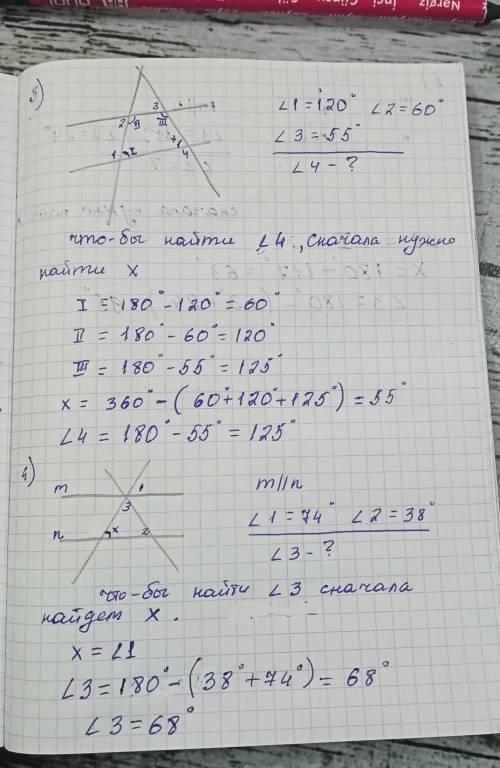 3)
∠1=120° ∠2=60°
∠3=55°
∠4-?
3
2 II III
1 I x 4
что-бы найти ∠4, сначала нужно
найти x
I = 180°-120°=60°
II = 180°-60°=120°
III = 180°-55°=125°
x = 360°-(60°+120°+125°)=55°
∠4=180°-55°=125°
4)
m 1
3
n x 2
m//n
∠1=74° ∠2=38°
∠3-?
что-бы найти ∠3 сначала
найдем x.
x=∠1
∠3=180°-(38°+74°)=68°
∠3=68°